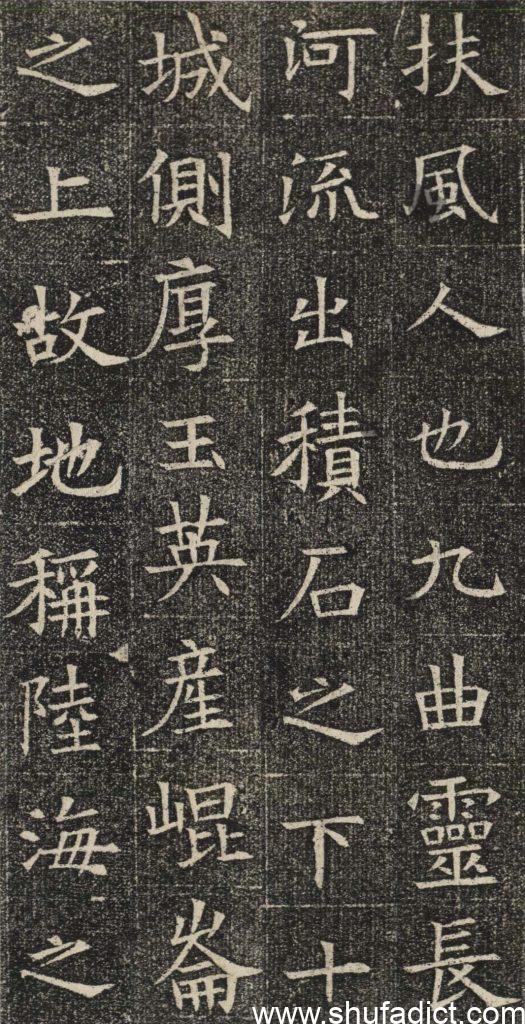 扶風人也九曲靈長
河流出積石之下十
城側厚玉英産崐崙
之上故地稱陸海之
www.shufadict.com